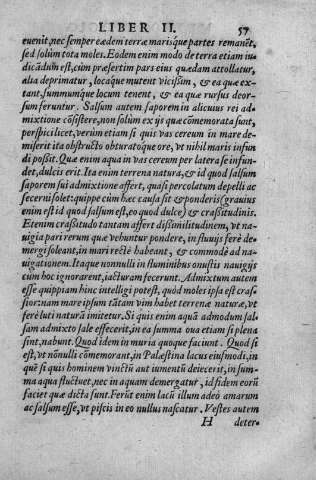 LIBER II. 57
euenit, nec semper eædem terræ marisq́ue partes remanẽt,
sed solùm tota moles. Eodem enim modo de terra etiam iu-
dicãdum est, cùm præsertim pars eius quædam attollatur,
alia deprimatur, locaq́ue mutent vicißim, & ea quæ ex-
tant, summumque locum tenent, & ea quæ rursus deor-
sum feruntur. Salsum autem saporem in alicuius rei ad-
mixtione cõsistere, non solùm ex ijs quæ cõmemorata sunt,
perspici licet, verùm etiam si quis vas cereum in mare de-
miserit ita obstructo obturatoque ore, vt nihil maris infun
di poßit. Quæ enim aqua in vas cereum per latera se infun-
det, dulcis erit. Ita enim terrena natura, & id quod salsum
saporem sui admixtione affert, quasi percolatum depelli ac
secerni solet: quippe cùm hæc causa sit & põderis (grauius
enim est id quod salsum est, eo quod dulce) & craßitudinis.
Etenim craßitudo tantam affert dißimilitudinem, vt na-
uigia pari rerum quæ vehuntur pondere, in fluuijs ferè de-
mergi soleant, in mari rectè habeant, & commodè ad na-
uigationem. Itaque nonnulli in fluminibus onustis nauigijs
cum hoc ignorarent, iacturam fecerunt. Admixtum autem
esse quippiam hinc intelligi potest, quòd moles ipsa est craß
sior: nam mare ipsum tãtam vim habet terrenæ naturæ, vt
ferè luti naturã imitetur. Si quis enim aquã admodum sal-
sam admixto sale effecerit, in ea summa oua etiam si plena
sint, nabunt. Quod idem in muria quoque faciunt. Quod si
est, vt nõnulli cõmemorant, in Palæstina lacus eiusmodi, in
quẽ si quis hominem vinctũ aut iumentũ deiecerit, in sum-
ma aqua fluctuet, nec in aquam demergatur, id fidem eorũ
faciet quæ dicta sunt. Ferũt enim lacũ illum adeo amarum
ac salsum esse, vt piscis in eo nullus nascatur. Vestes autem
H deter-